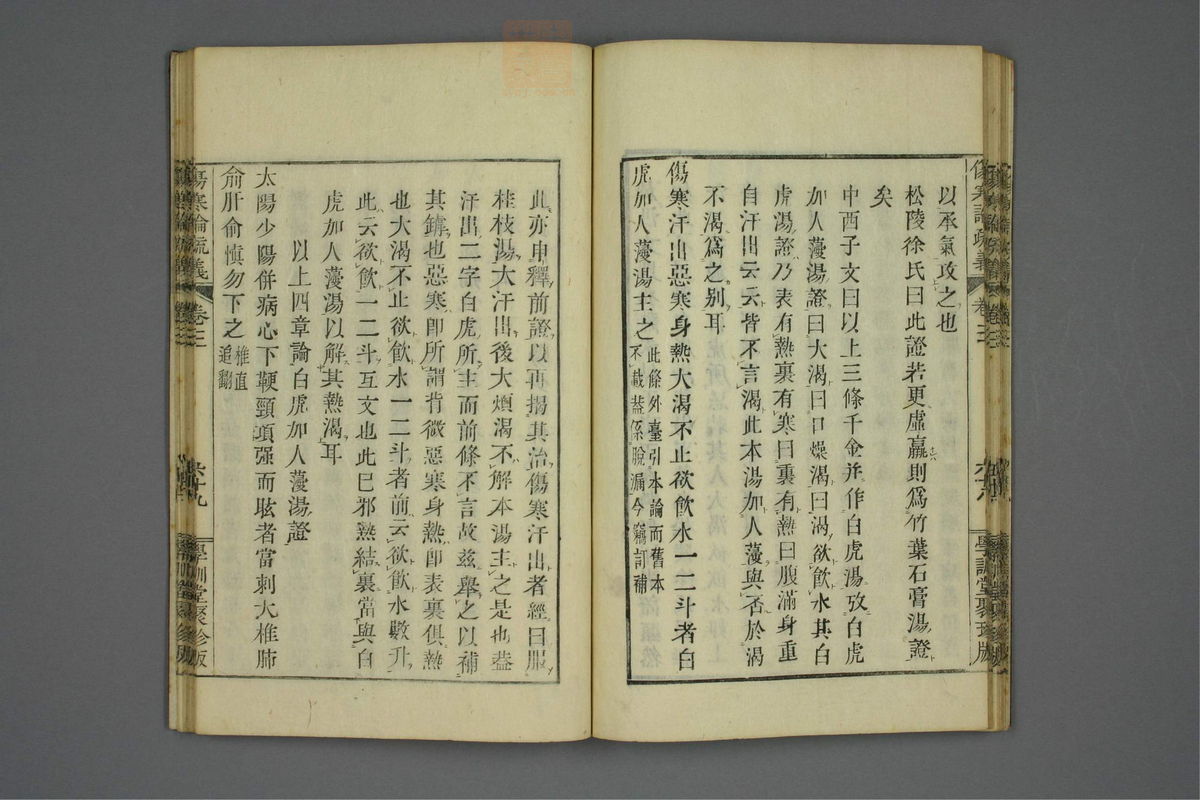 傷寒論疏義 卷三 六十八 學訓堂聚珍版
以承氣攻之也
松陵徐氏曰此證若更虛羸則爲竹葉石膏湯證
矣
中西子文曰以上三條千金并作白虎湯攷白虎
加人薓湯證曰大渴曰口燥渴曰渴欲飮水其白
虎湯證乃表有熱裏有寒曰裏有熱曰腹滿身重
自汗出云云皆不言渴此本湯加人薓與否於渴
不渴爲之別耳
傷寒汗出惡寒身熱大渴不止欲飮水一二斗者白
虎加人薓湯主之此條外臺引本論而舊本
不載葢係脫漏今竊訂補
此亦申釋前證以再揭其治傷寒汗出者經曰服
桂枝湯大汗出後大煩渴不解本湯主之是也葢
汗出二字白虎所主而前條不言故玆舉之以補
其罅也惡寒卽所謂背微惡寒身熱卽表裏俱熱
也大渴不止欲飮水一二斗者前云欲飮水數升
此云欲飮一二斗互文也此已邪熱結裏當與白
虎加人薓湯以解其熱渴耳
以上四章論白虎加人薓湯證
太陽少陽併病心下鞕頸項强而眩者當刺大椎肺
兪肝兪愼勿下之椎直
追翻
傷寒論疏義 卷三 六十九 學訓堂聚珍版